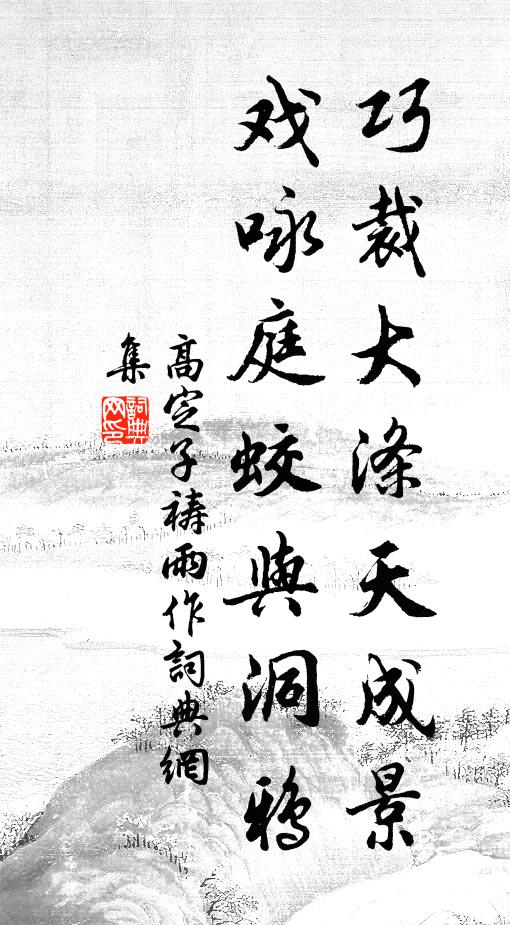 巧裁大涤天成景
戏咏庭蛟與洞鴉
高定子祷雨作詞典網
集
詞典网印